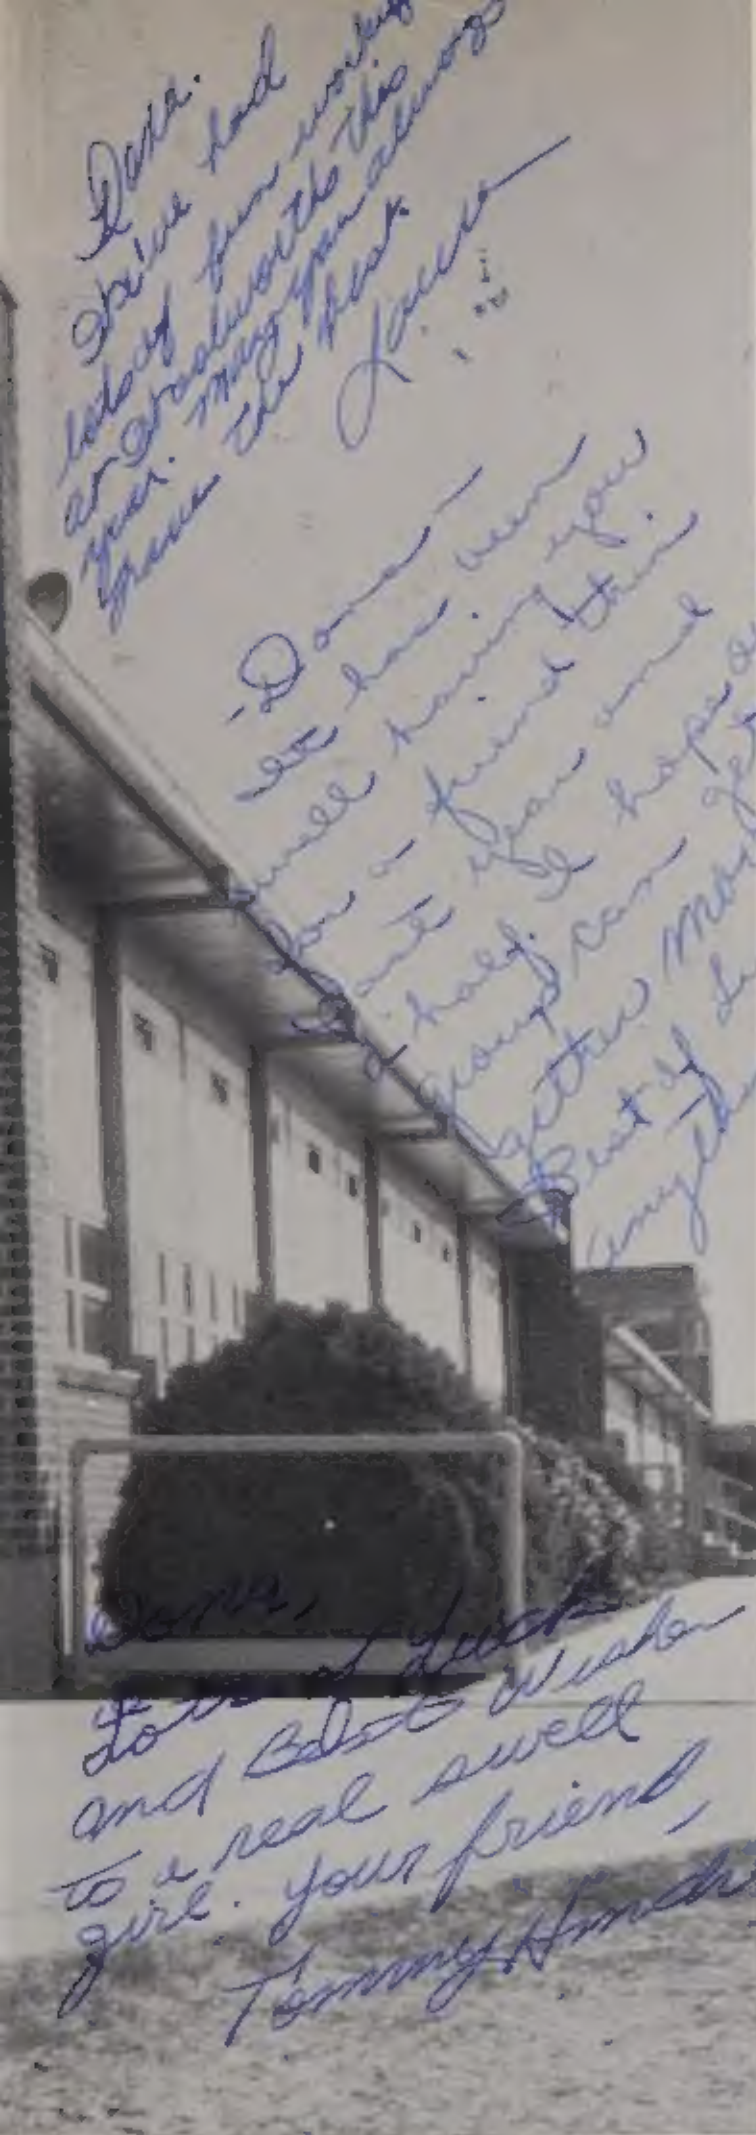 Dona.
We've had
lots of fun working
at Woolworths this
year. May you always
have the best.
Laura
-Dona-
It has been
swell having you
for a friend this
past year and
a half. I hope our
group can get
gether
Best of Lu
anyth
Dona,
Lots of Luck
and Best Wishes
to a real swell
girl. Your friend,
Tommy